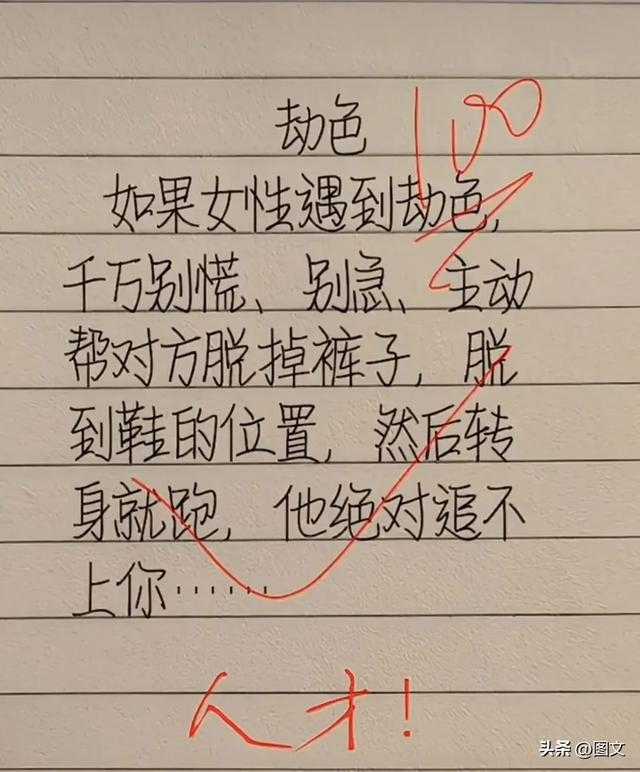 劫色
100
如果女性遇到劫色,
千万别慌、别急、主动
帮对方脱掉裤子,脱
到鞋的位置,然后转
身就跑,他绝对追不
上你……
人才!
头条 @图文